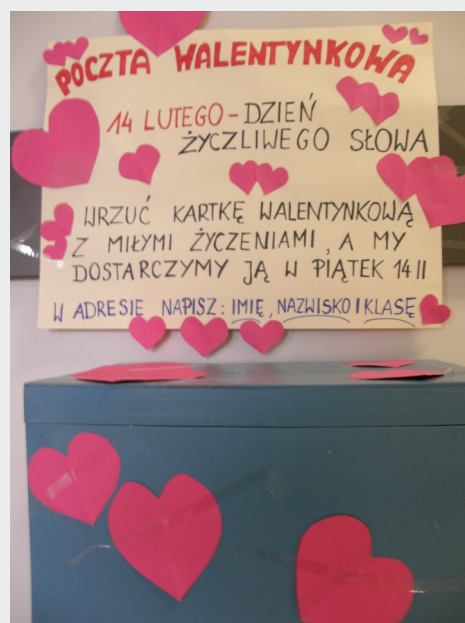 POCZTA WALENTYNKOWA
14 LUTEGO - DZIEŃ
ŻYCZLIWEGO SŁOWA
WRZUĆ KARTKĘ WALENTYNKOWĄ
Z MIŁYMI ŻYCZENIAMI, A MY
DOSTARCZYMY JĄ W PIĄTEK 14 II
W ADRESIE NAPISZ: IMIĘ, NAZWISKO I KLASĘ